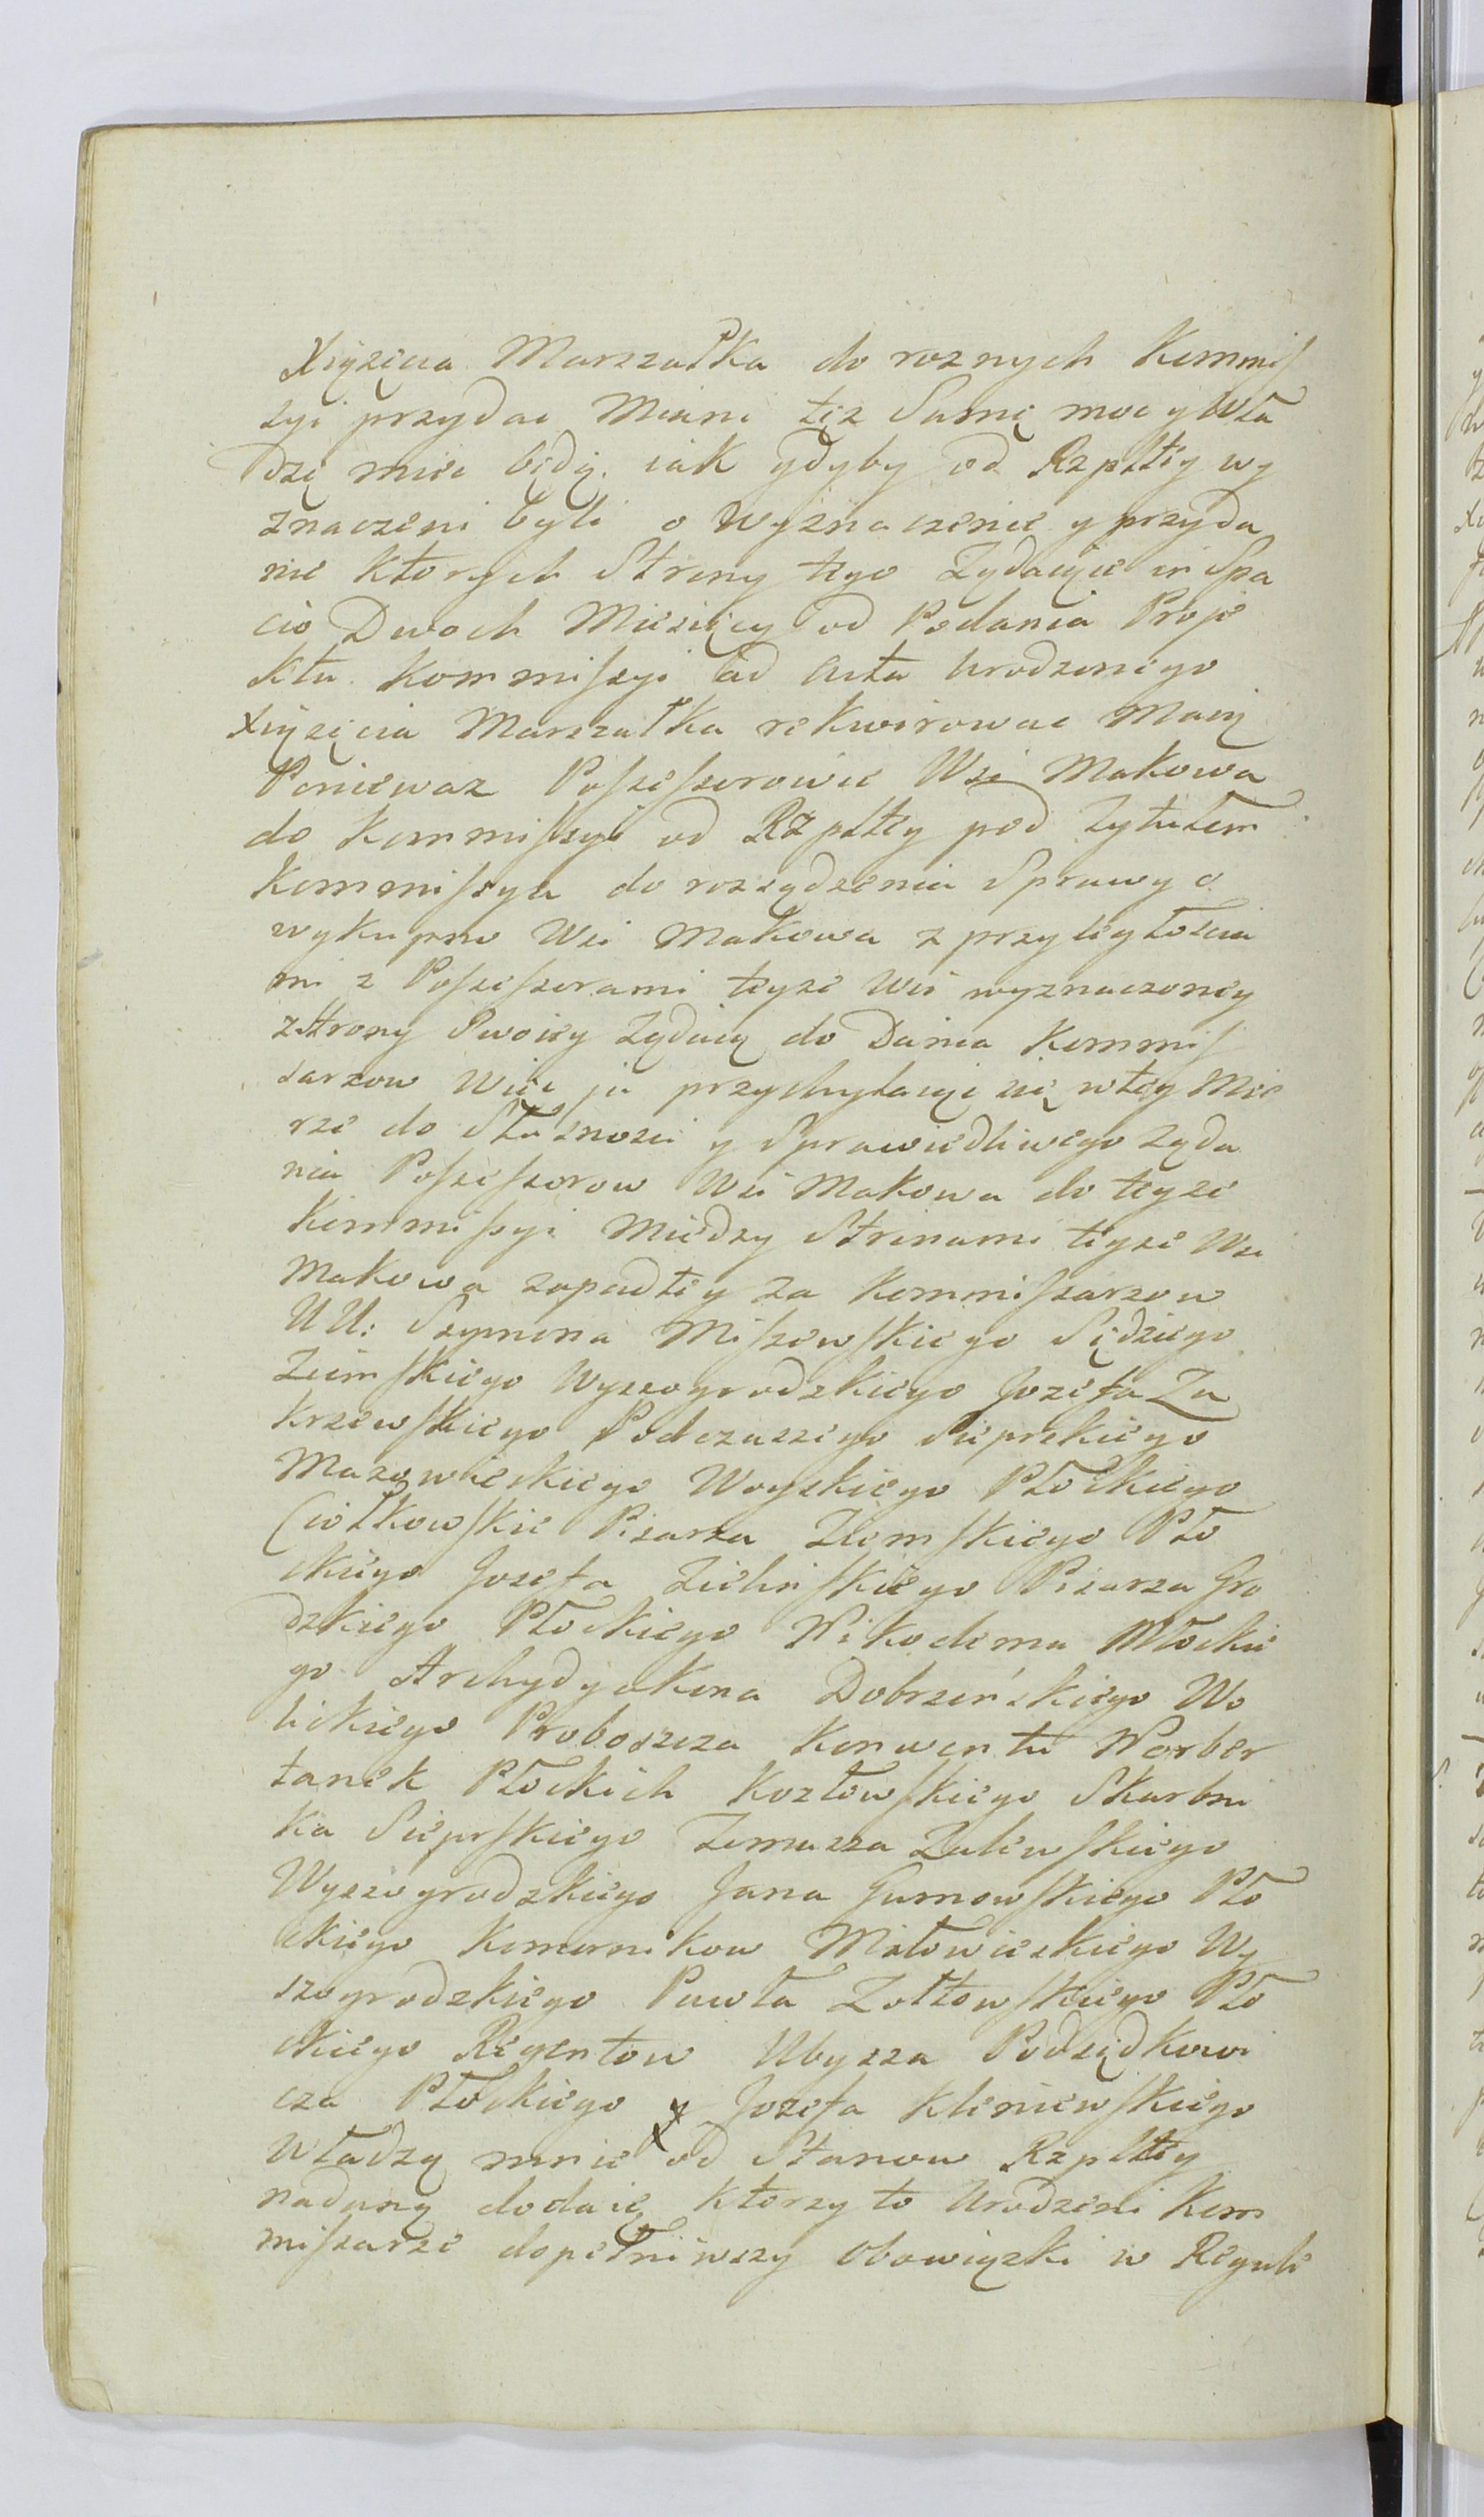 Xiązęcia Marszałka do roznych Kommis
syi przydac Mieni tęz Samę moc y Wła
dzę miec będą. iak gdyby od Rzpltey wy
znaczeni byli o Wyznaczenie y przyda
nie ktorych Strony tego Ządaiące in Spa
cio Dwoch Miesięcy od Podania Proje
ktu Kommissyi ad Acta Urodzonego
Xiązęcia Marszałka rekwirowac Maią
Poniewaz Possessorowie Wsi Makowa
do Kommissyi od Rzpltey pod Tytułem
Kommissya do rozsądzenia Sprawy o
wykupno Wsi Makowa z przyległoscia
mi z Possessorami teyze Wsi wyznaczoney
z Strony Swoiey Ządaią do Dania Kommis
sarzow Więc ja przychylaiąc się w tey Mie
rze do Słusznosci y Sprawiedliwego ząda
nia Possessorow Wsi Makowa do teyze
Kommissyi Między Stronami teyze Wsi
Makowa zapadłey za Kommissarzow
UU: Szymona Miszewskiego Sędziego
Ziemskiego Wyszogrodzkiego Jozefa Za
krzewskiego Podczaszego Sieprskiego
Mazowieckiego Woyskiego Płockiego
Ciołkowskie Pisarza Ziemskiego Pło
ckiego Jozefa Zielinskiego Pisarza Gro
dzkiego Płockiego Nikodema Młockie
go Archydyakona Dobrzeńskiego Wo
lickiego Proboszcza Konwentu Norber
tanek Płockich Kozłowskiego Skarbni
ka Sieprskiego Tomasza Zalewskiego
Wyszogrodzkiego Jana Gumowskiego Pło
ckiego Komornikow Miłowieckiego Wy
szogrodzkiego Pawła Zołtowskiego Pło
ckiego Regentow Ubysza Podsędkowi
cza Płockiego y Jozefa Kleniewskiego
Władzą mnie od Stanow Rzpltey
nadaną dodaię ktorzy to Urodzeni Kom
missarze dopełniwszy Obowiązki w Reguli